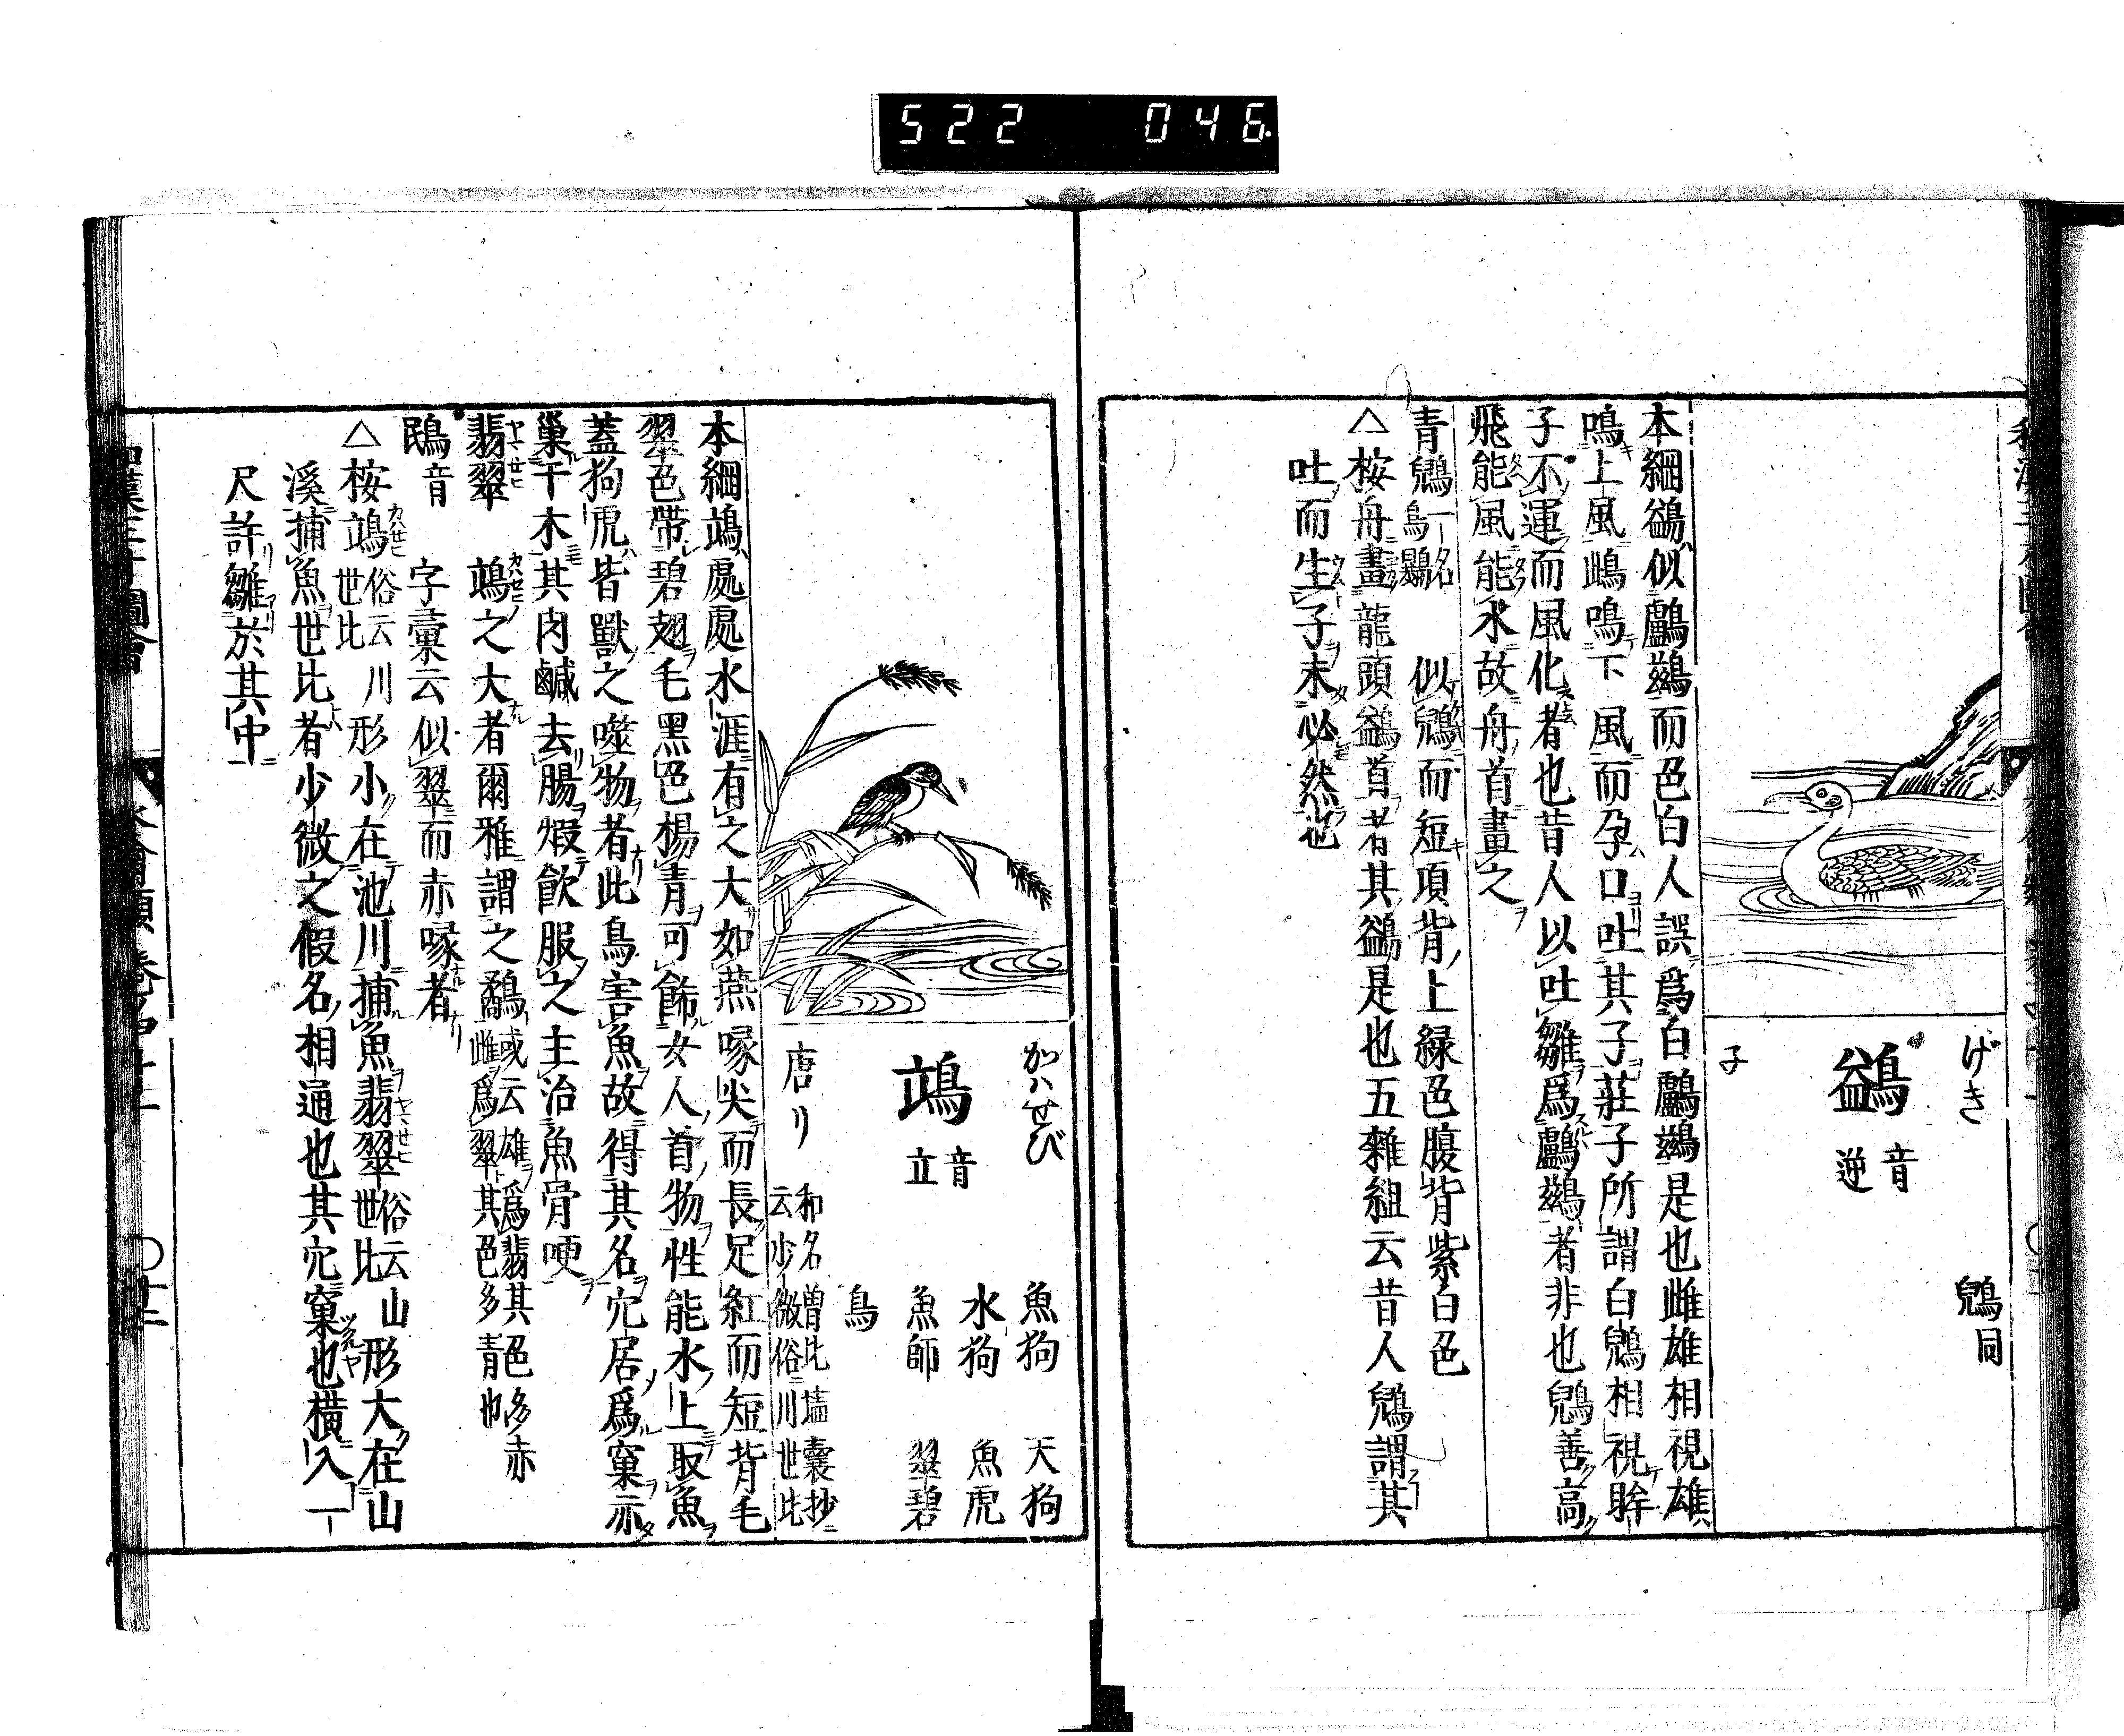 522 046.
げき
鷁
音
逆
鶃同
子
本綱鷁似鸕鷀而色白人誤爲白鸕鷀是也雌雄相視雄
鳴上風雌鳴下風而孕口吐其子莊子所謂白鶃相視眸
子不運而風化者也昔人以吐雛爲鸕鷀者非也鶃善高
飛能風能水故舟首畫之
青鶃一名烏鸔 似鶃而短項背上緑色腹背紫白色
△桉舟畫龍頭鷁首者其鷁是也五雜組云昔人鶃謂其
吐而生子未必然也
かハせび
鴗
音
立
魚狗 天狗
水狗 魚虎
魚師 翠碧
鳥
唐リ
和名曽比壒囊抄
云少微俗云川世比
本綱鴗處處水涯有之大如燕喙尖而長足紅而短背毛
翠色帶碧翅毛黒色楊青可飾女人首物性能水上取魚
蓋狗虎皆獸之噬物者此鳥害魚故得其名穴居爲窠亦
巢于木其肉鹹去腸煆飲服之主治魚骨哽
翡翠 鴗之大者爾雅謂之鷸或云雄爲翡其色多赤
雌爲翠其色多青也
鴖音 字彙云似翠而赤喙者
△桉鴗俗云川世比形小在池川捕魚翡翠俗云山世比形大在山
溪捕魚世比者少微之假名相通也其穴窠也横入一
尺許雛於其中
和漢三才圖會 水禽類 卷四十一 〇十二